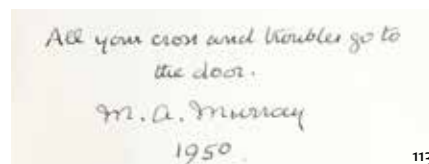 All your cross and troubles go to
the door.
M. A. Murray
1950
113